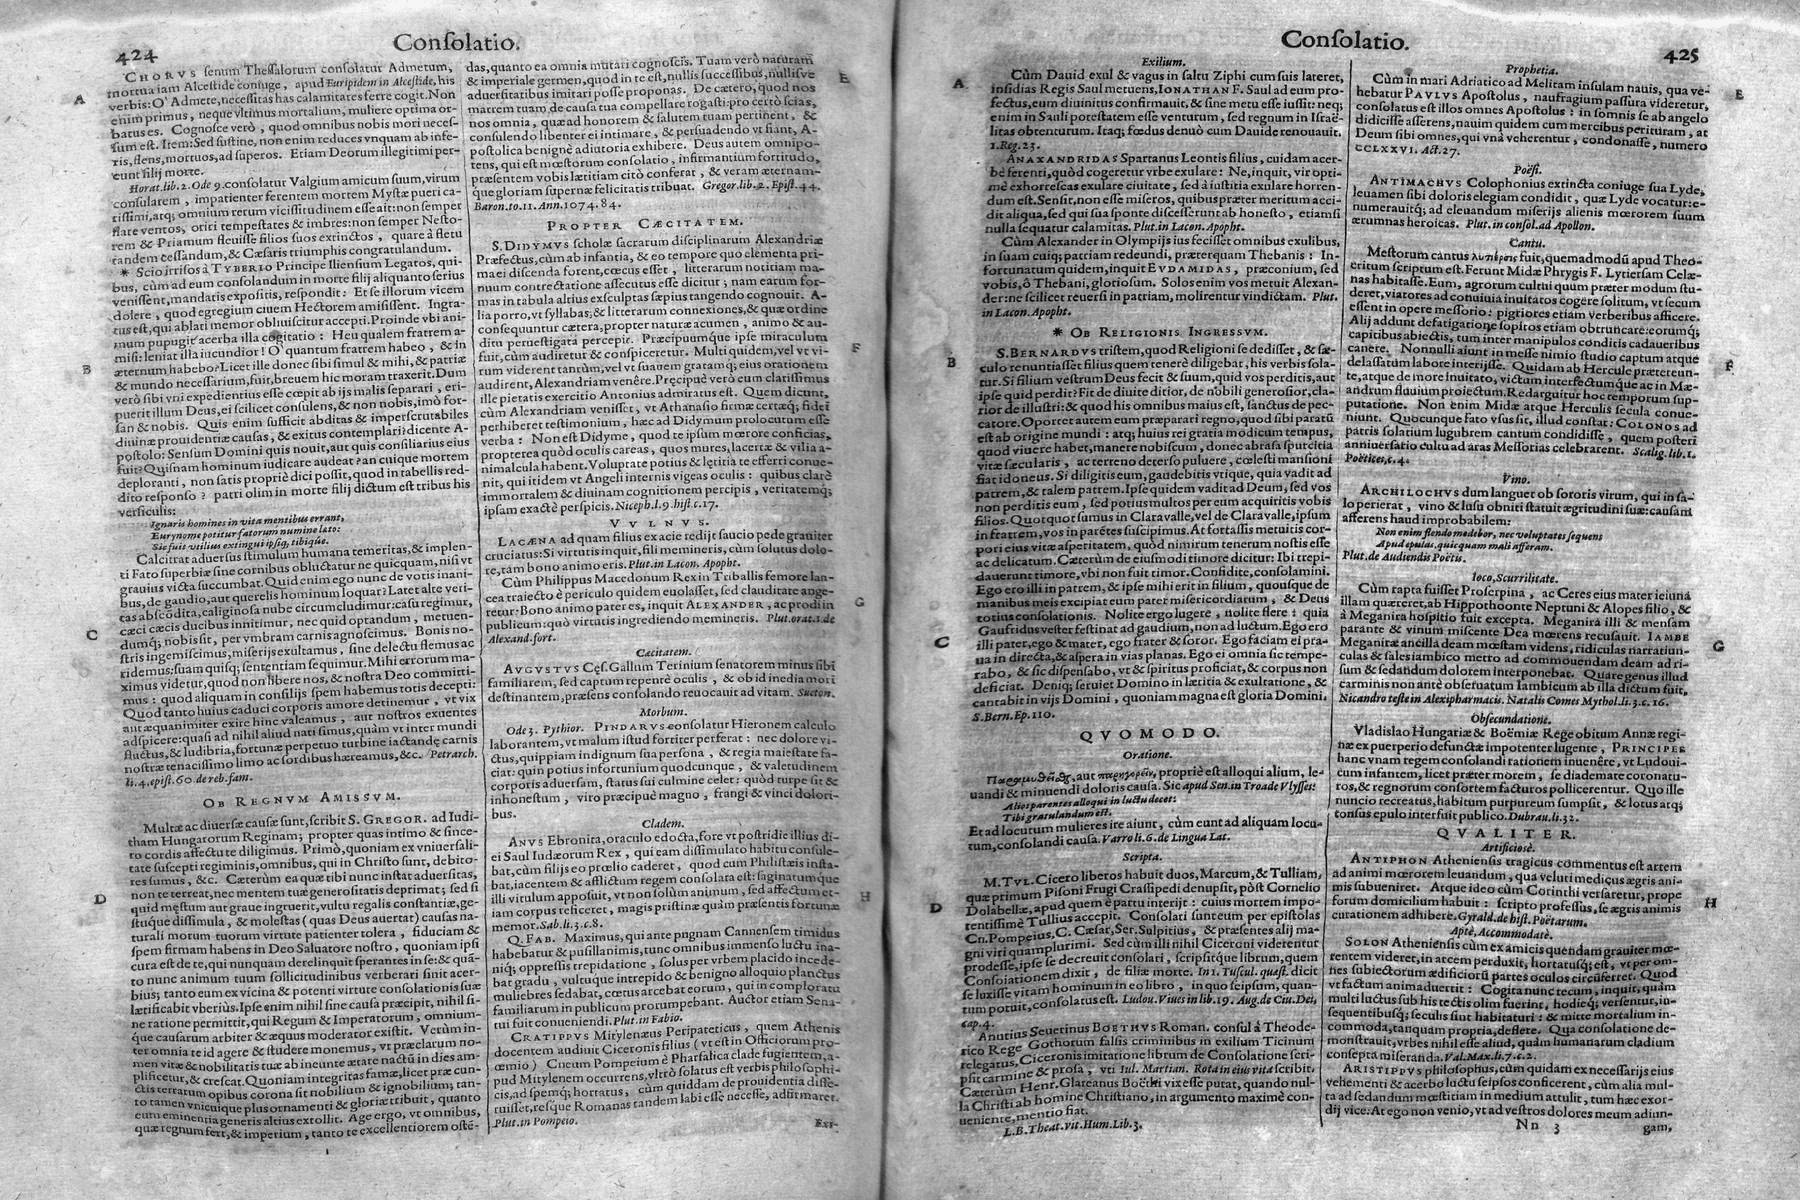 424
Conſolatio.
CHORVS ſenum Theſſalorum conſolatur Admetum,
mortua iam Alceſtide coniuge, apud Euripidem in Alceſtide, his
verbis: O' Admete, neceſſitas has calamitates ferre cogit. Non
enim primus, neque vltimus mortalium, muliere optima or-
batus es. Cognoſce verò, quod omnibus nobis mori neceſ-
ſum eſt. Item: Sed ſuſtine, non enim reduces vnquam ab infe-
ris, flens, mortuos, ad ſuperos. Etiam Deorum illegitimi per-
eunt filij morte.
Horat. lib. 2. Ode 9. conſolatur Valgium amicum ſuum, virum
conſularem, impatienter ferentem mortem Myſtæ pueri ca-
riſſimi, atq; omnium rerum viciſſitudinem eſſe ait: non ſemper
flare ventos, oriri tempeſtates & imbres: non ſemper Neſto-
rem & Priamum fleuiſſe filios ſuos extinctos, quare à fletu
tandem ceſſandum, & Cæſaris triumphis congratulandum.
* Scio irriſos à TYBERIO Principe Ilienſium Legatos, qui-
bus, cùm ad eum conſolandum in morte filij aliquanto ſerius
veniſſent, mandatis expoſitis, reſpondit: Et ſe illorum vicem
dolere, quod egregium ciuem Hectorem amiſiſſent. Ingra-
tus eſt, qui ablati memor obliuiſcitur accepti. Proinde vbi ani-
mum pupugit acerba illa cogitatio: Heu qualem fratrem a-
miſi: leniat illa iucundior! O' quantum fratrem habeo, & in
æternum habebo? Licet ille donec ſibi ſimul & mihi, & patriæ
& mundo neceſſarium, fuit, breuem hic moram traxerit. Dum
verò ſibi vni expedientius eſſe cœpit ab ijs malis ſeparari, eri-
puerit illum Deus, ei ſcilicet conſulens, & non nobis, imò for-
ſan & nobis. Quis enim ſufficit abditas & imperſcrutabiles
diuinæ prouidentiæ cauſas, & exitus contemplari? dicente A-
poſtolo: Senſum Domini quis nouit, aut quis conſiliarius eius
fuit? Quiſnam hominum iudicare audeat? an cuique mortem
deploranti, non ſatis propriè dici poſſit, quod in tabellis red-
dito reſponſo? patri olim in morte filij dictum eſt tribus his
verſiculis:
Ignaris homines in vita mentibus errant,
Eurynome potitur fatorum numine lato:
Sic fuit vtilius extingui ipſiq, tibique.
Calcitrat aduerſus ſtimulum humana temeritas, & implen-
ti Fato ſuperbiæ ſine cornibus obluctatur ne quicquam, niſi vt
grauius victa ſuccumbat. Quid enim ego nunc de votis inani-
bus, de gaudio, aut querelis hominum loquar? Latet alte veri-
tas abſcōdita, caliginoſa nube circumcludimur: caſu regimur,
cæci cæcis ducibus innitimur, nec quid optandum, metuen-
dumq; nobis ſit, per vmbram carnis agnoſcimus. Bonis no-
ſtris ingemiſcimus, miſerijs exultamus, ſine delectu flemus ac
ridemus: ſuam quiſq; ſententiam ſequimur. Mihi errorum ma-
ximus videtur, quod non libere nos, & noſtra Deo committi-
mus: quod aliquam in conſilijs ſpem habemus toties decepti:
Quod tanto huius caduci corporis amore detinemur, vt vix
aut æquanimiter exire hinc valeamus, aut noſtros exuentes
adſpicere: quaſi ad nihil aliud nati ſimus, quàm vt inter mundi
fluctus, & ludibria, fortunæ perpetuo turbine iactandę carnis
noſtræ tenaciſſimo limo ac ſordibus hæreamus, &c. Petrarch.
li. 4. epiſt. 60. de reb. fam.
OB REGNVM AMISSVM.
Multæ ac diuerſæ cauſæ ſunt, ſcribit S. GREGOR. ad Iudi-
tham Hungarorum Reginam; propter quas intimo & ſince-
ro cordis affectu te diligimus. Primò, quoniam ex vniuerſali-
tate ſuſcepti regiminis, omnibus, qui in Chriſto ſunt, debito-
res ſumus, &c. Cæterùm ea quæ tibi nunc inſtat aduerſitas,
non te terreat, nec mentem tuæ generoſitatis deprimat; ſed ſi
quid męſtum aut graue ingruerit, vultu regalis conſtantiæ, ge-
ſtuq́ue diſſimula, & moleſtas (quas Deus auertat) cauſas na-
turali morum tuorum virtute patienter tolera, fiduciam &
ſpem firmam habens in Deo Saluatore noſtro, quoniam ipſi
cura eſt de te, qui nunquam derelinquit ſperantes in ſe: & quā-
to nunc animum tuum ſollicitudinibus verberari ſinit acer-
bius; tanto eum ex vicina & potenti virtute conſolationis ſuæ
lætificabit vberiùs. Ipſe enim nihil ſine cauſa præcipit, nihil ſi-
ne ratione permittit, qui Regum & Imperatorum, omnium-
q́ue cauſarum arbiter & æquus moderator exiſtit. Verùm in-
ter omnia te id agere & ſtudere monemus, vt præclarum no-
men vitæ & nobilitatis tuæ ab ineunte ætate nactū in dies am-
plificetur, & creſcat. Quoniam integritas famæ, licet præ cun-
ctis terrarum opibus corona ſit nobilium & ignobilium; tan-
to tamen vnicuique plus ornamenti & gloriæ tribuit, quanto
eum eminentia generis altius extollit. Age ergo, vt omnibus,
quæ regnum fert, & imperium, tanto te excellentiorem oſtē-
A
B
C
D
das, quanto ea omnia mutari cognoſcis. Tuam verò naturam
& imperiale germen, quod in te eſt, nullis ſucceſſibus, nulliſve
aduerſitatibus imitari poſſe proponas. De cætero, quod nos
matrem tuam de cauſa tua compellare rogaſti: pro certo ſcias,
nos omnia, quæ ad honorem & ſalutem tuam pertinent, &
conſulendo libenter ei intimare, & perſuadendo vt fiant, A-
poſtolica benignè adiutoria exhibere. Deus autem omnipo-
tens, qui eſt mœſtorum conſolatio, infirmantium fortitudo,
præſentem vobis lætitiam citò conferat, & veram æternam-
que gloriam ſupernæ felicitatis tribuat. Gregor. lib. 2. Epiſt. 44.
Baron. to. 11. Ann. 1074. 84.
PROPTER CÆCITATEM.
S. DIDYMVS ſcholæ ſacrarum diſciplinarum Alexandriæ
Præfectus, cùm ab infantia, & eo tempore quo elementa pri-
ma ei diſcenda forent, cœcus eſſet, litterarum notitiam ma-
nuum contrectatione aſſecutus eſſe dicitur; nam earum for-
mas in tabula altius exſculptas ſæpius tangendo cognouit. A-
lia porro, vt ſyllabas, & litterarum connexiones, & quæ ordine
conſequuntur cætera, propter naturæ acumen, animo & au-
ditu peruestigata percepit. Præcipuumque ipſe miraculum
fuit, cùm audiretur & conſpiceretur. Multi quidem, vel vt vi-
rum viderent tantùm, vel vt ſuauem gratamq; eius orationem
audirent, Alexandriam venêre. Pręcipuè vero cum clariſſimus
ille pietatis exercitio Antonius admiratus eſt. Quem dicunt,
cùm Alexandriam veniſſet, vt Athanaſio firmæ certæq; fidei
perhiberet teſtimonium, hæc ad Didymum prolocutum eſſe
verba: Non eſt Didyme, quod te ipſum mœrore conficias,
propterea quòd oculis careas, quos mures, lacertæ & vilia a-
nimalcula habent. Voluptate potius & lętitia te efferri conue-
nit, qui itidem vt Angeli internis vigeas oculis: quibus clarè
immortalem & diuinam cognitionem percipis, veritatemq;
ipſam exactè perſpicis. Niceph. l. 9. hiſt. c. 17.
VVLNVS.
LACÆNA ad quam filius ex acie redijt ſaucio pede grauiter
cruciatus: Si virtutis inquit, fili memineris, cùm ſolutus dolo-
re, tam bono animo eris. Plut. in Lacon. Apopht.
Cùm Philippus Macedonum Rex in Triballis femore lan-
cea traiecto è periculo quidem euolaſſet, ſed clauditate ange-
retur: Bono animo pater es, inquit ALEXANDER, ac prodi in
publicum: quò virtutis ingrediendo memineris. Plut. orat. 1. de
Alexand. fort.
Cæcitatem.
AVGVSTVS Cęſ. Gallum Terinium ſenatorem minus ſibi
familiarem, ſed captum repentè oculis, & ob id inedia mori
deſtinantem, præſens conſolando reuocauit ad vitam. Sueton.
Morbum.
Ode 3. Pythior. PINDARVS conſolatur Hieronem calculo
laborantem, vt malum iſtud fortiter perferat: nec dolore vi-
ctus, quippiam indignum ſua perſona, & regia maieſtate fa-
ciat: quin potius infortunium quodcunque, & valetudinem
corporis aduerſam, ſtatus ſui culmine celet: quòd turpe ſit &
inhoneſtum, viro præcipuè magno, frangi & vinci dolori-
bus.
Cladem.
ANVS Ebronita, oraculo edocta, fore vt poſtridie illius di-
ei Saul Iudæorum Rex, qui eam diſſimulato habitu conſule-
bat, cùm filijs eo prœlio caderet, quod cum Philiſtæis inſta-
bat, iacentem & afflictum regem conſolata eſt: ſaginatumque
illi vitulum appoſuit, vt non ſolùm animum, ſed affectum et-
iam corpus reficeret, magis priſtinæ quàm præſentis fortunæ
memor. Sab. li. 3. c. 8.
Q. FAB. Maximus, qui ante pugnam Cannenſem timidus
habebatur & puſillanimis, tunc omnibus immenſo luctu ina-
niq; oppreſſis trepidatione, ſolus per vrbem placido incede-
bat gradu, vultuque intrepido & benigno alloquio planctus
muliebres ſedabat, cœtus arcebat eorum, qui in comploratu
familiarum in publicum prorumpebant. Auctor etiam Sena-
tui fuit conueniendi. Plut. in Fabio.
CRATIPPVS Mitylenæus Peripateticus, quem Athenis
docentem audiuit Ciceronis filius (vt eſt in Officiorum pro-
œmio) Cneum Pompeium è Pharſalica clade fugientem, a-
pud Mitylenem occurrens, vltrò ſolatus eſt verbis philoſophi-
cis, ad ſpemq; hortatus, cùm quiddam de prouidentia diſſe-
ruiſſet, reſque Romanas tandem labi eſſe neceſſe, adfirmaret.
Plut. in Pompeio.
Exi-
E
F
G
H
Conſolatio.
425
Exilium.
Cùm Dauid exul & vagus in ſaltu Ziphi cum ſuis lateret,
inſidias Regis Saul metuens, IONATHAN F. Saul ad eum pro-
fectus, eum diuinitus confirmauit, & ſine metu eſſe iuſſit: neq;
enim in Sauli poteſtatem eſſe venturum, ſed regnum in Iſraë-
litas obtenturum. Itaq; fœdus denuò cum Dauide renouauit.
1. Reg. 23.
ANAXANDRIDAS Spartanus Leontis filius, cuidam acer-
bè ferenti, quòd cogeretur vrbe exulare: Ne, inquit, vir opti-
mè exhorreſcas exulare ciuitate, ſed à iuſtitia exulare horren-
dum eſt. Senſit, non eſſe miſeros, quibus præter meritum acci-
dit aliqua, ſed qui ſua ſponte diſceſſerunt ab honeſto, etiamſi
nulla ſequatur calamitas. Plut. in Lacon. Apopht.
Cùm Alexander in Olympijs ius feciſſet omnibus exulibus,
in ſuam cuiq; patriam redeundi, præterquam Thebanis: In-
fortunatum quidem, inquit EVDAMIDAS, præconium, ſed
vobis, ô Thebani, glorioſum. Solos enim vos metuit Alexan-
der: ne ſcilicet reuerſi in patriam, molirentur vindictam. Plut.
in Lacon. Apopht.
* OB RELIGIONIS INGRESSVM.
S. BERNARDVS triſtem, quod Religioni ſe dediſſet, & ſæ-
culo renuntiaſſet filius quem tenerè diligebat, his verbis ſola-
tur. Si filium veſtrum Deus fecit & ſuum, quid vos perditis, aut
ipſe quid perdit? Fit de diuite ditior, de nobili generoſior, cla-
rior de illuſtri: & quod his omnibus maius eſt, ſanctus de pec-
catore. Oportet autem eum præparari regno, quod ſibi paratū
eſt ab origine mundi: atq; huius rei gratia modicum tempus,
quod viuere habet, manere nobiſcum, donec abraſa ſpurcitia
vitæ ſæcularis, ac terreno deterſo puluere, cœleſti manſioni
fiat idoneus. Si diligitis eum, gaudebitis vtique, quia vadit ad
patrem, & talem patrem. Ipſe quidem vadit ad Deum, ſed vos
non perditis eum, ſed potius multos per eum acquiritis vobis
filios. Quotquot ſumus in Claravalle, vel de Claravalle, ipſum
in fratrem, vos in parētes ſuſcipimus. At fortaſſis metuitis cor-
pori eius vitæ aſperitatem, quod nimirum tenerum noſtis eſſe
ac delicatum. Cæterùm de eiuſmodi timore dicitur: Ibi trepi-
dauerunt timore, vbi non fuit timor. Confidite, conſolamini.
Ego ero illi in patrem, & ipſe mihi erit in filium, quouſque de
manibus meis excipiat eum pater miſericordiarum, & Deus
totius conſolationis. Nolite ergo lugere, nolite flere: quia
Gaufridus veſter feſtinat ad gaudium, non ad luctum. Ego ero
illi pater, ego & mater, ego frater & ſoror. Ego faciam ei pra-
ua in directa, & aſpera in vias planas. Ego ei omnia ſic tempe-
rabo, & ſic diſpenſabo, vt & ſpiritus proficiat, & corpus non
deficiat. Deniq; ſeruiet Domino in lætitia & exultatione, &
cantabit in vijs Domini, quoniam magna eſt gloria Domini.
S. Bern. Ep. 110.
QVOMODO.
Oratione.
Παραμυθεῖσθαι, aut παρηγορεῖν, propriè eſt alloqui alium, le-
uandi & minuendi doloris cauſa. Sic apud Sen. in Troade Vlyſſes:
Alios parentes alloqui in luctu decet:
Tibi gratulandum eſt.
Et ad locutum mulieres ire aiunt, cùm eunt ad aliquam locu-
tum, conſolandi cauſa. Varro li. 6. de Lingua Lat.
Scripta.
M. TVL. Cicero liberos habuit duos, Marcum, & Tulliam,
quæ primum Piſoni Frugi Craſſipedi denupſit, pòſt Cornelio
Dolabellæ, apud quem è partu interijt: cuius mortem impo-
tentiſſimè Tullius accepit. Conſolari ſunt eum per epiſtolas
Cn. Pompeius, C. Cæſar, Ser. Sulpitius, & præſentes alij ma-
gni viri quamplurimi. Sed cùm illi nihil Ciceroni viderentur
prodeſſe, ipſe ſe decreuit conſolari, ſcripſitque librum, quem
Conſolationem dixit, de filiæ morte. In 1. Tuſcul. quæſt. dicit
ſe luxiſſe vitam hominum in eo libro, in quo ſeipſum, quan-
tum potuit, conſolatus eſt. Ludou. Viues in lib. 19. Aug. de Ciu. Dei,
cap. 4.
Anutius Seuerinus BOETHVS Roman. conſul à Theode-
rico Rege Gothorum falſis criminibus in exilium Ticinum
relegatus, Ciceronis imitatione librum de Conſolatione ſcri-
pſit carmine & proſa, vti Iul. Martian. Rota in eius vita ſcribit.
Cæterùm Henr. Glareanus Boëthi vix eſſe putat, quando nul-
la Chriſti ab homine Chriſtiano, in argumento maximè con-
ueniente, mentio fiat.
L. B. Theat. vit. Hum. Lib. 3.
A
B
C
D
Prophetia.
Cùm in mari Adriatico ad Melitam inſulam nauis, qua ve-
hebatur PAVLVS Apoſtolus, naufragium paſſura videretur,
conſolatus eſt illos omnes Apoſtolus: in ſomnis ſe ab angelo
didiciſſe aſſerens, nauim quidem cum mercibus perituram, at
Deum ſibi omnes, qui vnà veherentur, condonaſſe, numero
CCLXXVI. Act. 27.
Poëſi.
ANTIMACHVS Colophonius extincta coniuge ſua Lyde,
leuamen ſibi doloris elegiam condidit, quæ Lyde vocatur: e-
numerauitq; ad eleuandum miſerijs alienis mœrorem ſuum
ærumnas heroicas. Plut. in conſol. ad Apollon.
Cantu.
Meſtorum cantus λυτιέρσης fuit, quemadmodū apud Theo-
critum ſcriptum eſt. Ferunt Midæ Phrygis F. Lytierſam Celæ-
nas habitaſſe. Eum, agrorum cultui quum præter modum ſtu-
deret, viatores ad conuiuia inuitatos cogere ſolitum, vt ſecum
eſſent in opere meſſorio: pigriores etiam verberibus afficere.
Alij addunt defatigatione ſopitos etiam obtruncare: eorumq;
capitibus abiectis, tum inter manipulos conditis cadaueribus
canere. Nonnulli aiunt in meſſe nimio ſtudio captum atque
delaſſatum labore interijſſe. Quidam ab Hercule prætereun-
te, atque de more inuitato, victum interfectumq́ue ac in Mæ-
andrum fluuium proiectum. Redarguitur hoc temporum ſup-
putatione. Non enim Midæ atque Herculis ſecula conue-
niunt. Quocunque fato vſus ſit, illud conſtat: COLONOS ad
patris ſolatium lugubrem cantum condidiſſe, quem poſteri
anniuerſatio cultu ad aras Meſſorias celebrarent. Scalig. lib. 1.
Poëtices, c. 4.
Vino.
ARCHILOCHVS dum languet ob ſororis virum, qui in ſa-
lo perierat, vino & luſu obniti ſtatuit ægritudini ſuæ: cauſam
afferens haud improbabilem:
Non enim flendo medebor, nec voluptates ſequens
Apud epulas, quicquam mali afferam.
Plut. de Audiendis Poëtis.
Ioco, Scurrilitate.
Cùm rapta fuiſſet Proſerpina, ac Ceres eius mater ieiuna
illam quæreret, ab Hippothoonte Neptuni & Alopes filio, &
à Meganira hoſpitio fuit excepta. Meganira illi & menſam
parante & vinum miſcente Dea mœrens recuſauit. IAMBE
Meganiræ ancilla deam mœſtam videns, ridiculas narratiun-
culas & ſales iambico metro ad commouendam deam ad ri-
ſum & ſedandum dolorem interponebat. Quare genus illud
carminis non antè obſeruatum Iambicum ab illa dictum fuit,
Nicandro teſte in Alexipharmacis. Natalis Comes Mythol. li. 3. c. 16.
Obſecundatione.
Vladislao Hungariæ & Boëmiæ Rege obitum Annæ regi-
næ ex puerperio defunctæ impotenter lugente, PRINCIPES
hanc vnam regem conſolandi rationem inuenêre, vt Ludoui-
cum infantem, licet præter morem, ſe diademate coronatu-
ros, & regnorum conſortem facturos pollicerentur. Quo ille
nuncio recreatus, habitum purpureum ſumpſit, & lotus atq;
tonſus epulo interfuit publico. Dubrau. li. 32.
QVALITER.
Artificiosè.
ANTIPHON Athenienſis tragicus commentus eſt artem
ad animi mœrorem leuandum, qua veluti medicus ægris ani-
mis ſubueniret. Atque ideo cùm Corinthi verſaretur, prope
forum domicilium habuit: ſcripto profeſſus, ſe ægris animis
curationem adhibere. Gyrald. de hiſt. Poëtarum.
Aptè, Accommodatè.
SOLON Athenienſis cùm ex amicis quendam grauiter mœ-
rentem videret, in arcem perduxit, hortatuſq; eſt, vt per om-
nes ſubiectorum ædificiorū partes oculos circūferret. Quod
vt factum animaduertit: Cogita nunc tecum, inquit, quàm
multi luctus ſub his tectis olim fuerint, hodieq; verſentur, in-
ſequentibusq; ſeculis ſint habitaturi: & mitte mortalium in-
commoda, tanquam propria, deflere. Qua conſolatione de-
monſtrauit, vrbes nihil eſſe aliud, quàm humanarum cladium
conſepta miſeranda. Val. Max. li. 7. c. 2.
ARISTIPPVS philoſophus, cùm quidam ex neceſſarijs eius
vehementi & acerbo luctu ſeipſos conficerent, cùm alia mul-
ta ad ſedandum mœſtitiam in medium attulit, tum hæc exor-
dij vice: At ego non venio, vt ad veſtros dolores meum adiun-
Nn 3
gam,
E
F
G
H